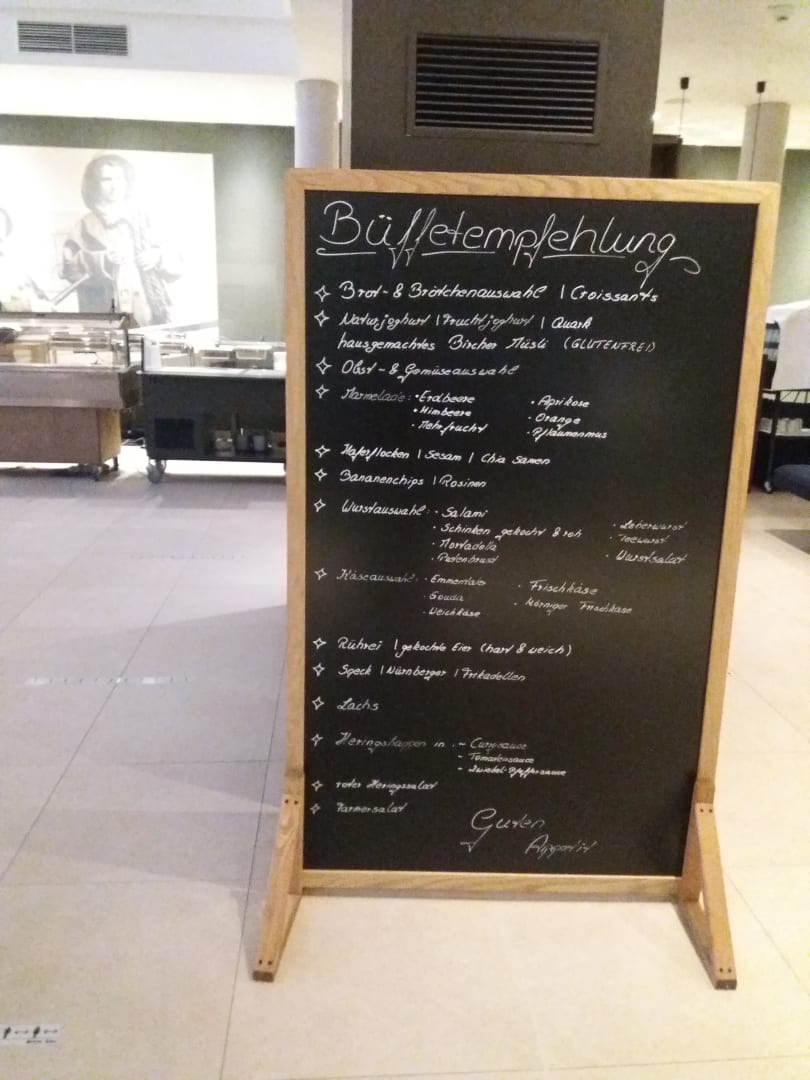 Büffetempfehlung
Brot- & Brötchenauswahl | Croissants
Naturjoghurt | Fruchtjoghurt | Quark
hausgemachtes Bircher Müsli (GLUTENFREI)
Obst- & Gemüseauswahl
Marmelade: • Erdbeere • Aprikose
• Himbeere • Orange
• Mehrfrucht • Pflaumenmus
Haferflocken | Sesam | Chia Samen
Bananenchips | Rosinen
Wurstauswahl: • Salami • Leberwurst
• Schinken gekocht & roh • Teewurst
• Mortadella • Wurstsalat
• Putenbrust
Käseauswahl: • Emmentaler • Frischkäse
• Gouda • Körniger Frischkäse
• Weichkäse
Rührei | gekochte Eier (hart & weich)
Speck | Nürnberger | Frikadellen
Lachs
Heringshappen in: - Currysauce
- Tomatensauce
- Zwiebel-Pfeffersauce
roter Heringssalat
Farmersalat
Guten
Appetit